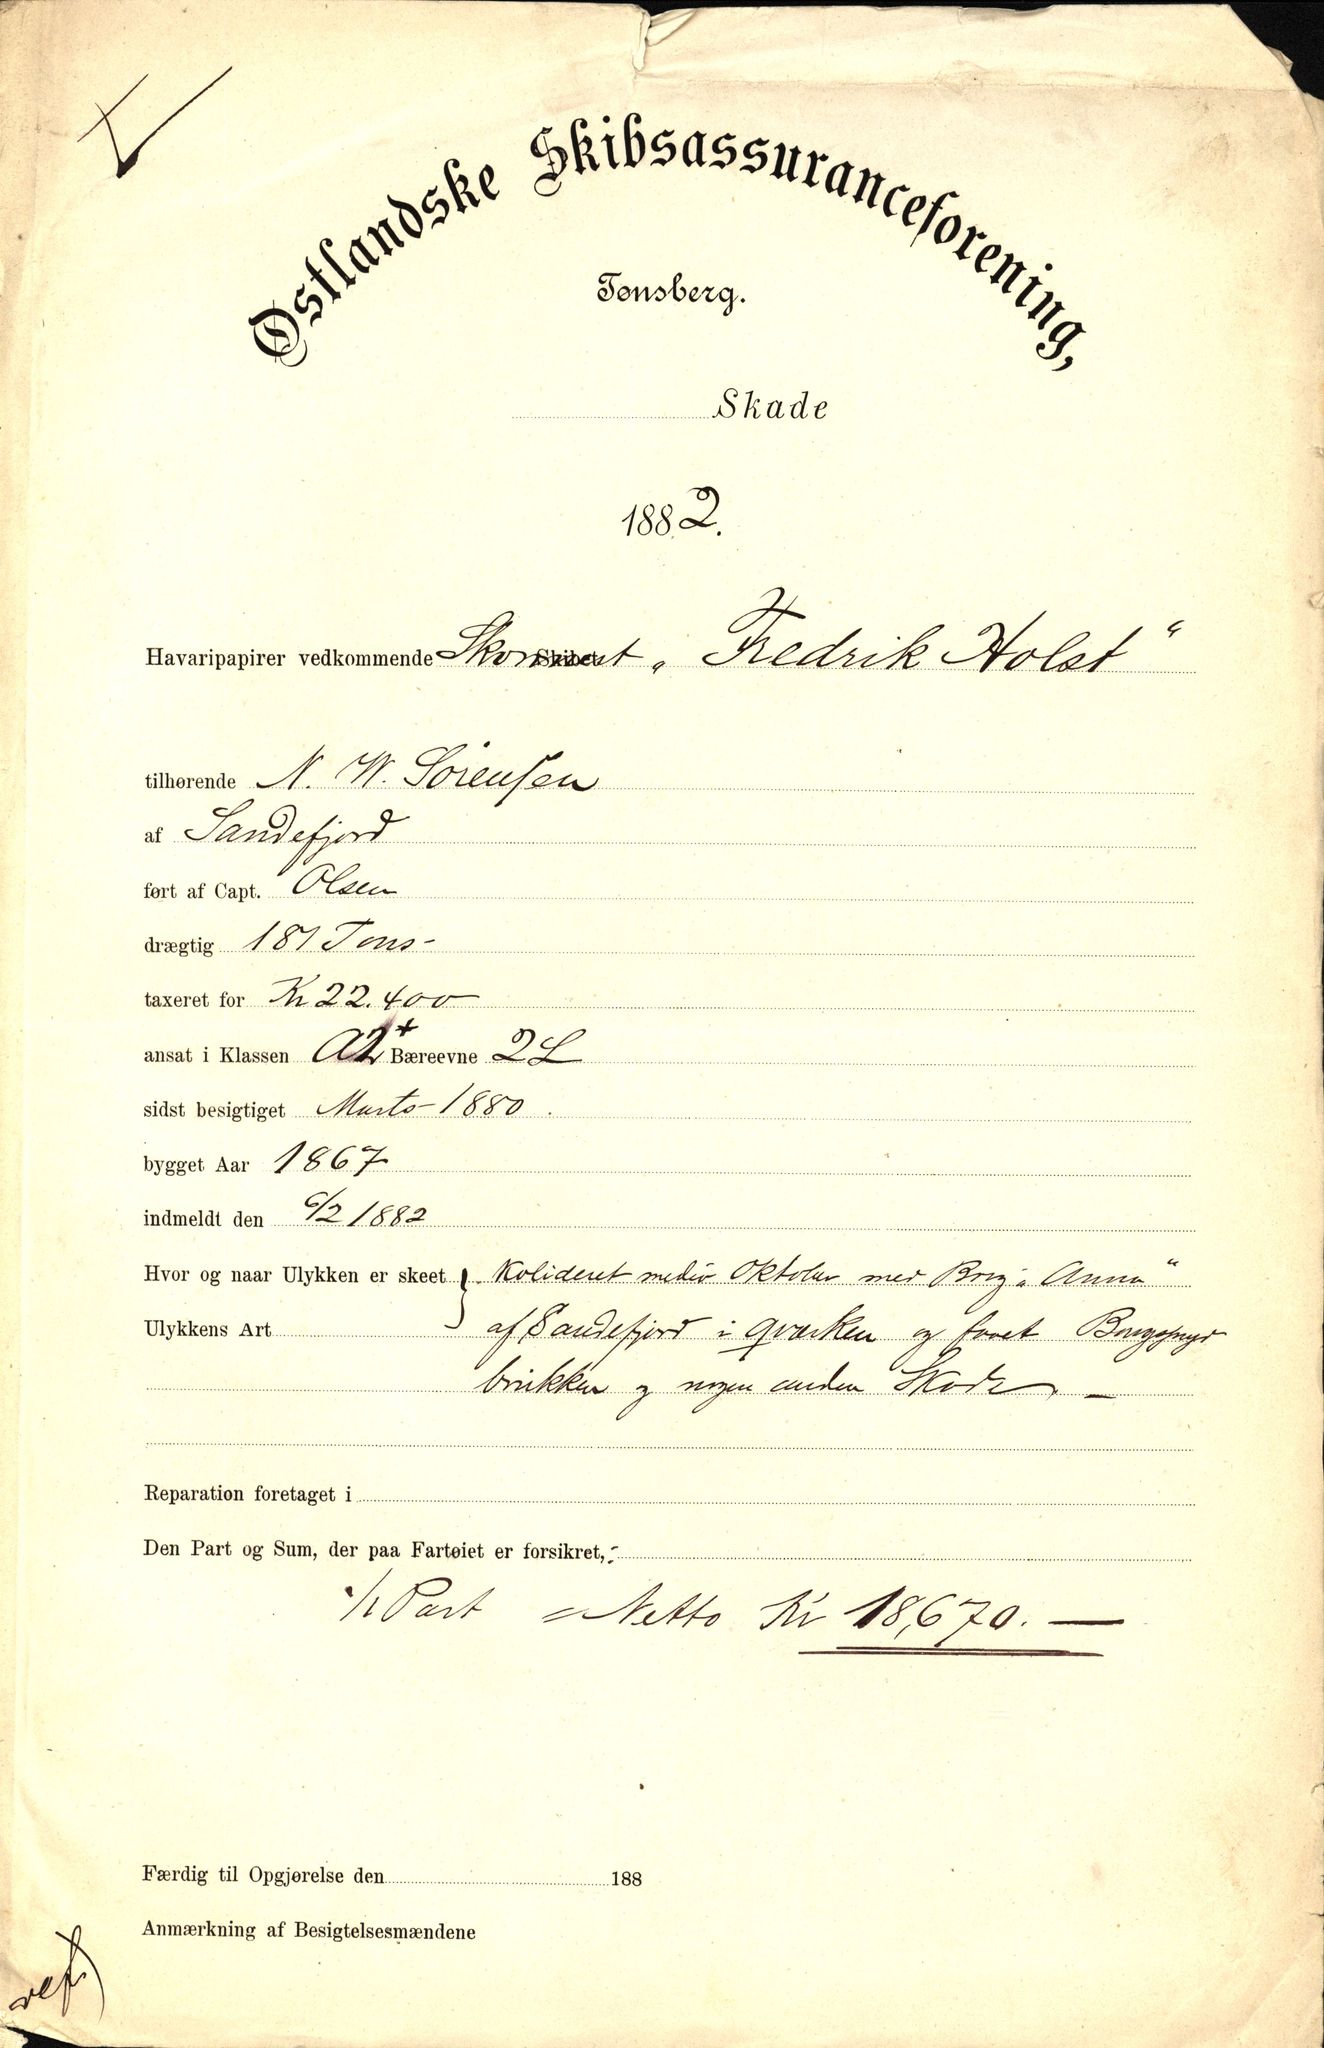 Østlandske Skibsassuranceforening,
Tønsberg.
Skade
1882.
Havaripapirer vedkommende Skonnert „Fredrik Holst“
tilhørende N. W. Sørensen
af Sandefjord
ført af Capt. Olsen
drægtig 181 Tons-
taxeret for Kr 22.400
ansat i Klassen A2+ Bæreevne 2 L
sidst besigtiget Marts 1880.
bygget Aar 1867
indmeldt den 6/2 1882
Hvor og naar Ulykken er skeet } Kolideret medio Oktober med Brig „Anna“
Ulykkens Art af Sandefjord i Qvarken og faaet
brækket og nogen anden Skade. —
Reparation foretaget i
Den Part og Sum, der paa Fartøiet er forsikret,:
1/1 Part = Netto Kr 18,670. —
Færdig til Opgjørelse den 188
Anmærkning af Besigtelsesmændene
ref.)